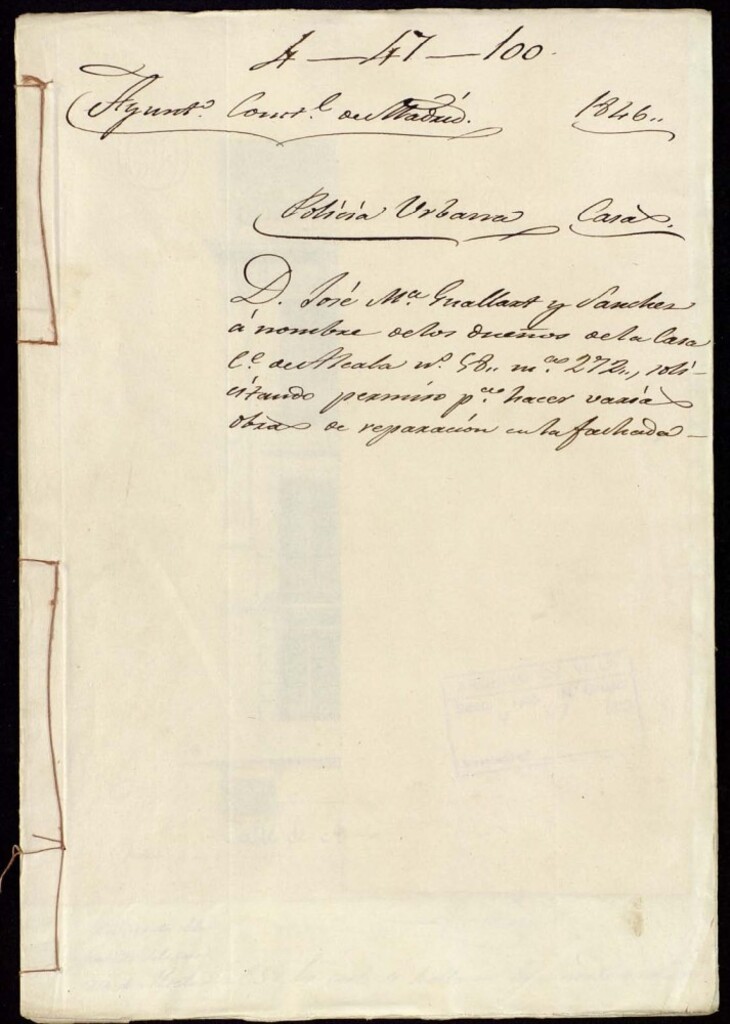 4 — 47 — 100.
Ayunt.º Const.l de Madrid. 1846..
Policía Urbana Casas.
D. José M.ª Guallart y Sanchez
á nombre de los dueños de la Casa
C.e de Alcala n.º 58.. m.na 272.., soli-
citando permiso p.ª hacer varias
obras de reparación en la fachada —